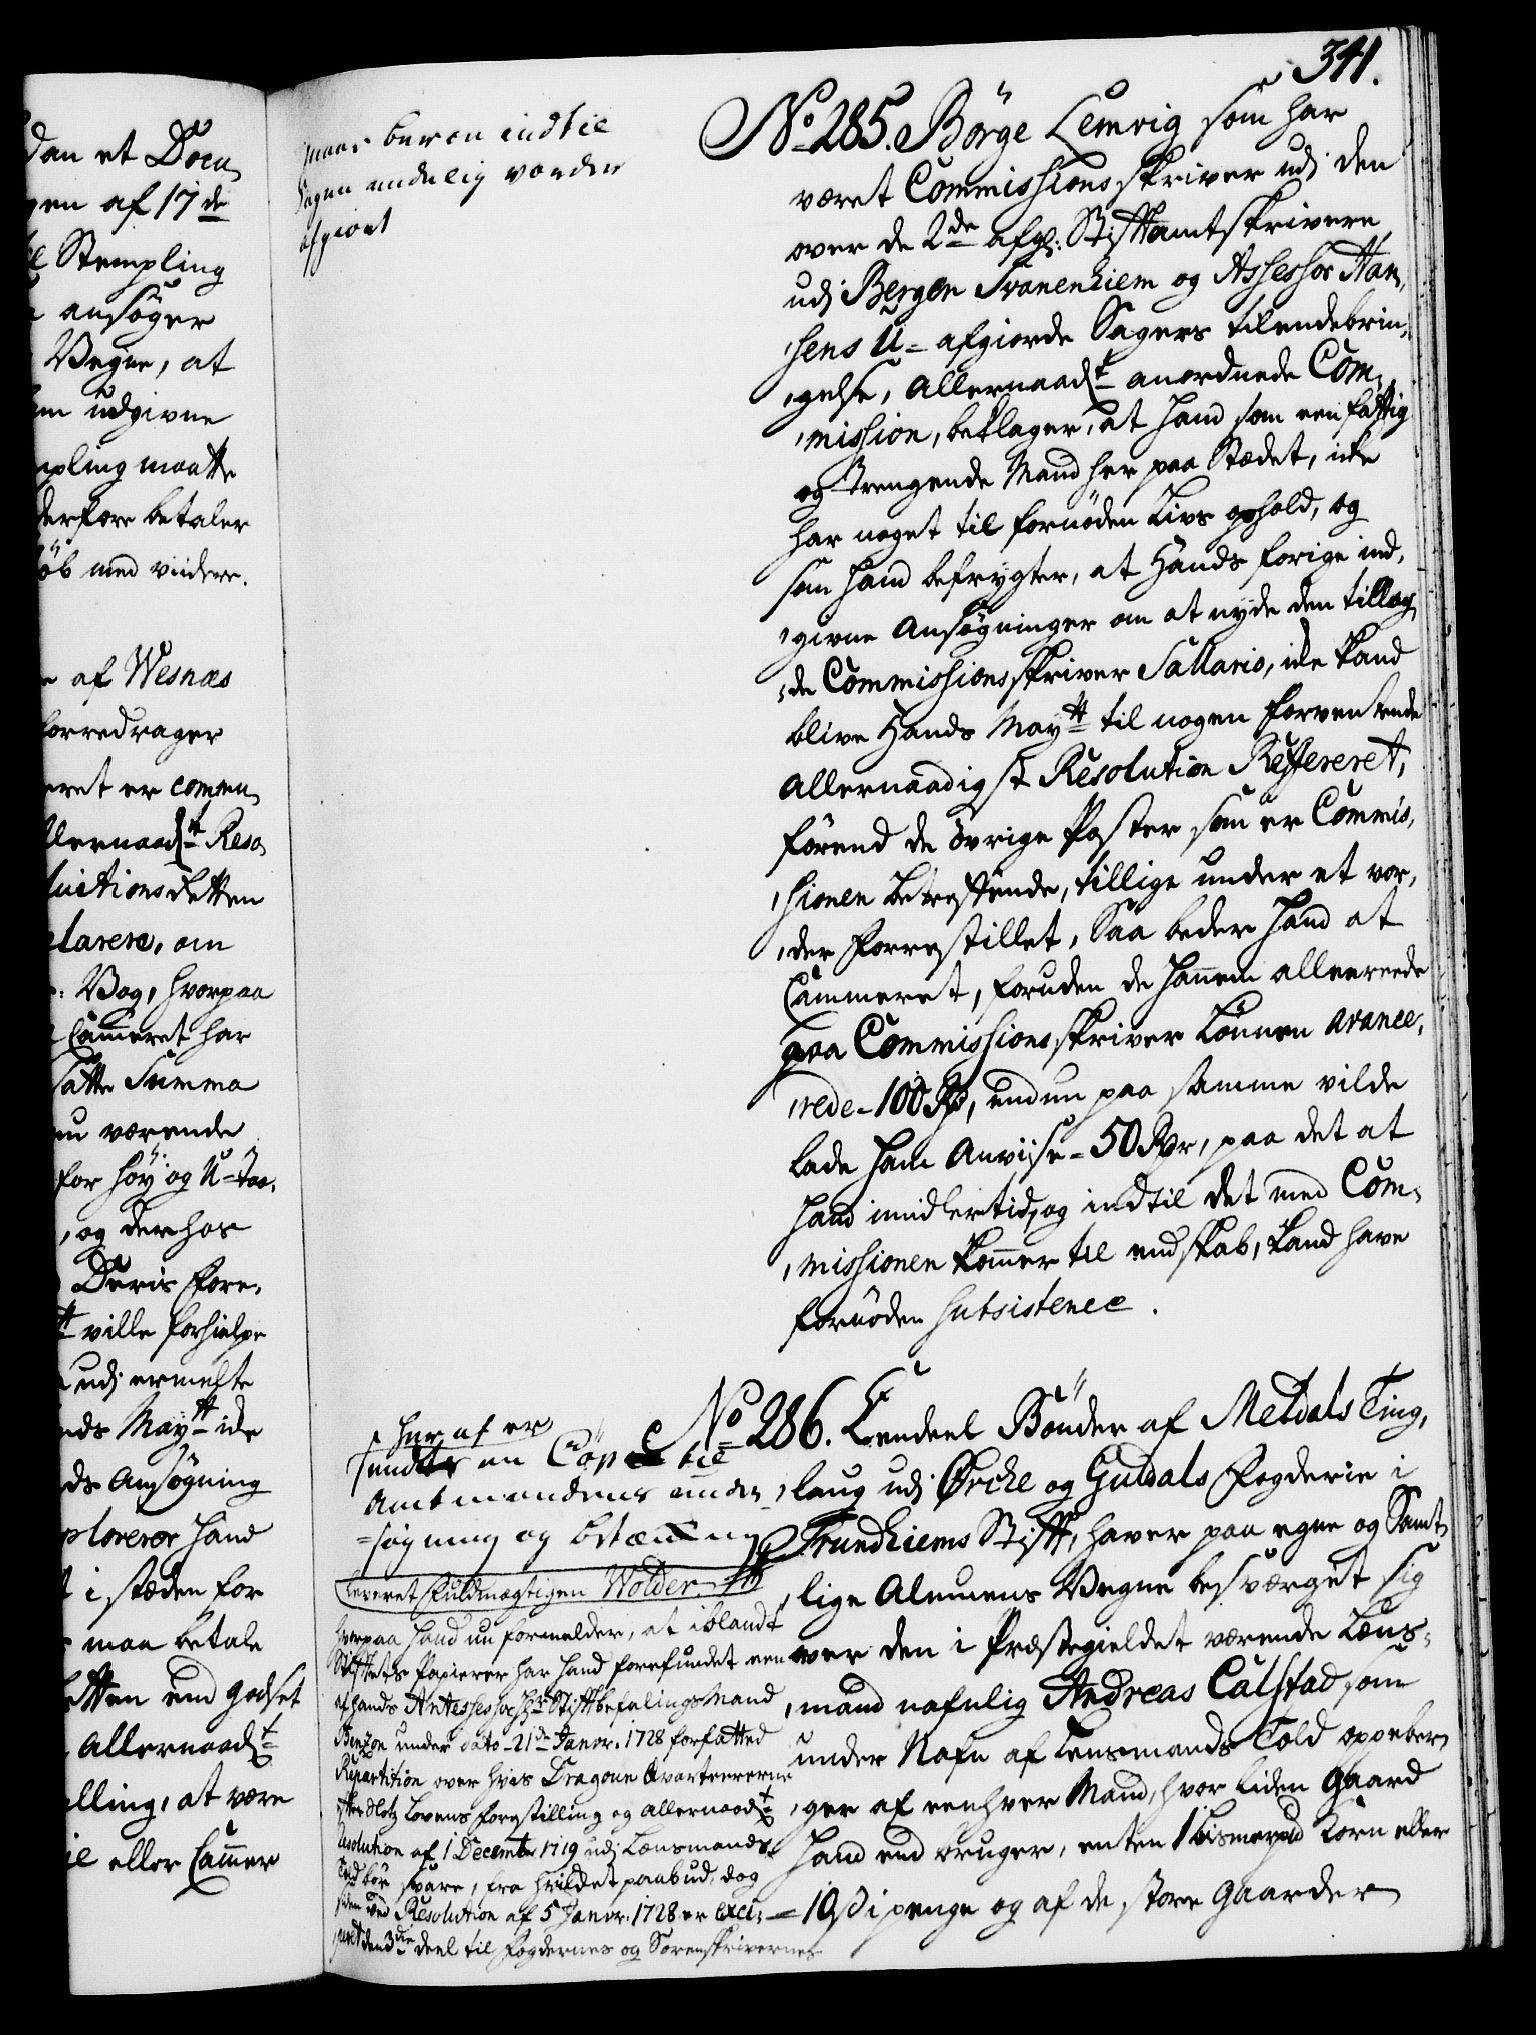 341.
dan et Docu,
gen af 17de
Stempling
ansöger
Vegne, at
udgivne
mpling maatte
derfore betaler
öb med viidere.
af Wesnæs
forredrager
eret er commu,
llernaadst Reso,
luitions Retten
clarere, om
Vog, hvorpaa
Cam̄eret har
satte Summa
nu værende
for höy og U-taa,
, og derhos
Deris fore,
ville forhielpe
udj ermelte
nds Maytt ide
ds Ansögning
plorerer hand
i stæden for
maa betale
etten und godset
Allernaadst
elling, at være
eller Cam̄er
maae beroe indtil
Sagen endelig vorder
afgiort
No 285. Börge Lemvig som har
været Commissions skriver udj den
over de 2de afgl: Stiftamtskrivere
udj Bergen Svanenhiem og Assessor Han,
,sens U-afgiorde Sagers tilendebrin,
,gelse, Allernaadst anordnede Com,
,mission, beklager, at hand som een fattig
og Trengende Mand her paa Stædet, icke
har noget til fornöden Livs ophold, og
som hand befrygter, at Hands forige ind,
,givne Ansögninger om at nyde den tillag,
,de Commissions skriver Sallario, icke kand
blive Hands Maytt til nogen forventende
Allernaadigst Resolution Reffereret,
förend de övrige Poster som er Commis,
,sionen betreffende, tillige under et vor,
,der forrestillet, Saa beder hand at
Cammeret, foruden de ham̄em allereede
paa Commissions skriver Lönnen avance,
,rede - 100 Rdr, endnu paa samme vilde
lade ham Anviise - 50 Rdr, paa det at
hand imidlertid, og indtil det med Com,
,missionen kom̄er til endskab, kand have
fornöden Subsistence.
her af er
sendt en Copie til
Amtmandens under,
=sögning og betænkning
leveret fuldmægtigen Wolder
hvorpaa hand nu formelder, at iblandt
Stiftets Papierer har hand forefundet een
af hands Antessessor Hr Stiftbefalings Mand
Benzon under dato - 21de Janvr. 1728 forfatted
Repartition over hvis Dragoun Qvarteererne
efter Slotz Lovens forestilling og Allernaadst
Resolution af 1 Decembr 1719 udj Lænsmands
Told bör svare, fra hvildet paabud, dog
siden ved Resolution af 5 Janvr. 1728 er exci,
,peret den 3die deel til fogdernes og Sorenskrivernes
No 286. Eendeel Bönder af Meldals Ting,
,laug udj Örche og Guldals fogderie i
Trundhiems Stift, haver paa egne og Samt,
,lige Almuens Vegne besværget sig
over den i Præstegieldet værende Læns,
,mand nafnlig Andreas Calstad som
under Nafn af Lensmands Told oppeber,
,ger af eenhver Mand, hvor liden Gaard
hand end bruger, enten 1 bismerpd Korn eller
- 10 ß i penge og af de store Gaarder